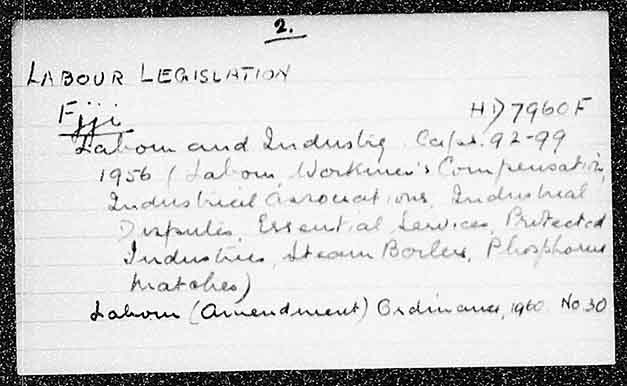 2.
LABOUR LEGISLATION
Fiji
HD7960F
Labour and Industry. Caps. 92-99
1956 (Labour, Workmen's Compensation,
Industrial Associations, Industrial
Disputes, Essential Services, Protected
Industries, Steam Boilers, Phosphorus
Matches)
Labour (Amendment) Ordinance, 1960. No 30